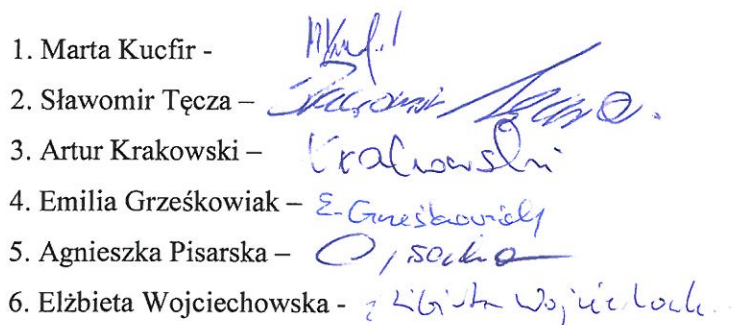 1. Marta Kucfir -
2. Sławomir Tęcza – Sławomir Tęcza.
3. Artur Krakowski – Krakowski
4. Emilia Grześkowiak – E. Grześkowiak
5. Agnieszka Pisarska –
6. Elżbieta Wojciechowska -